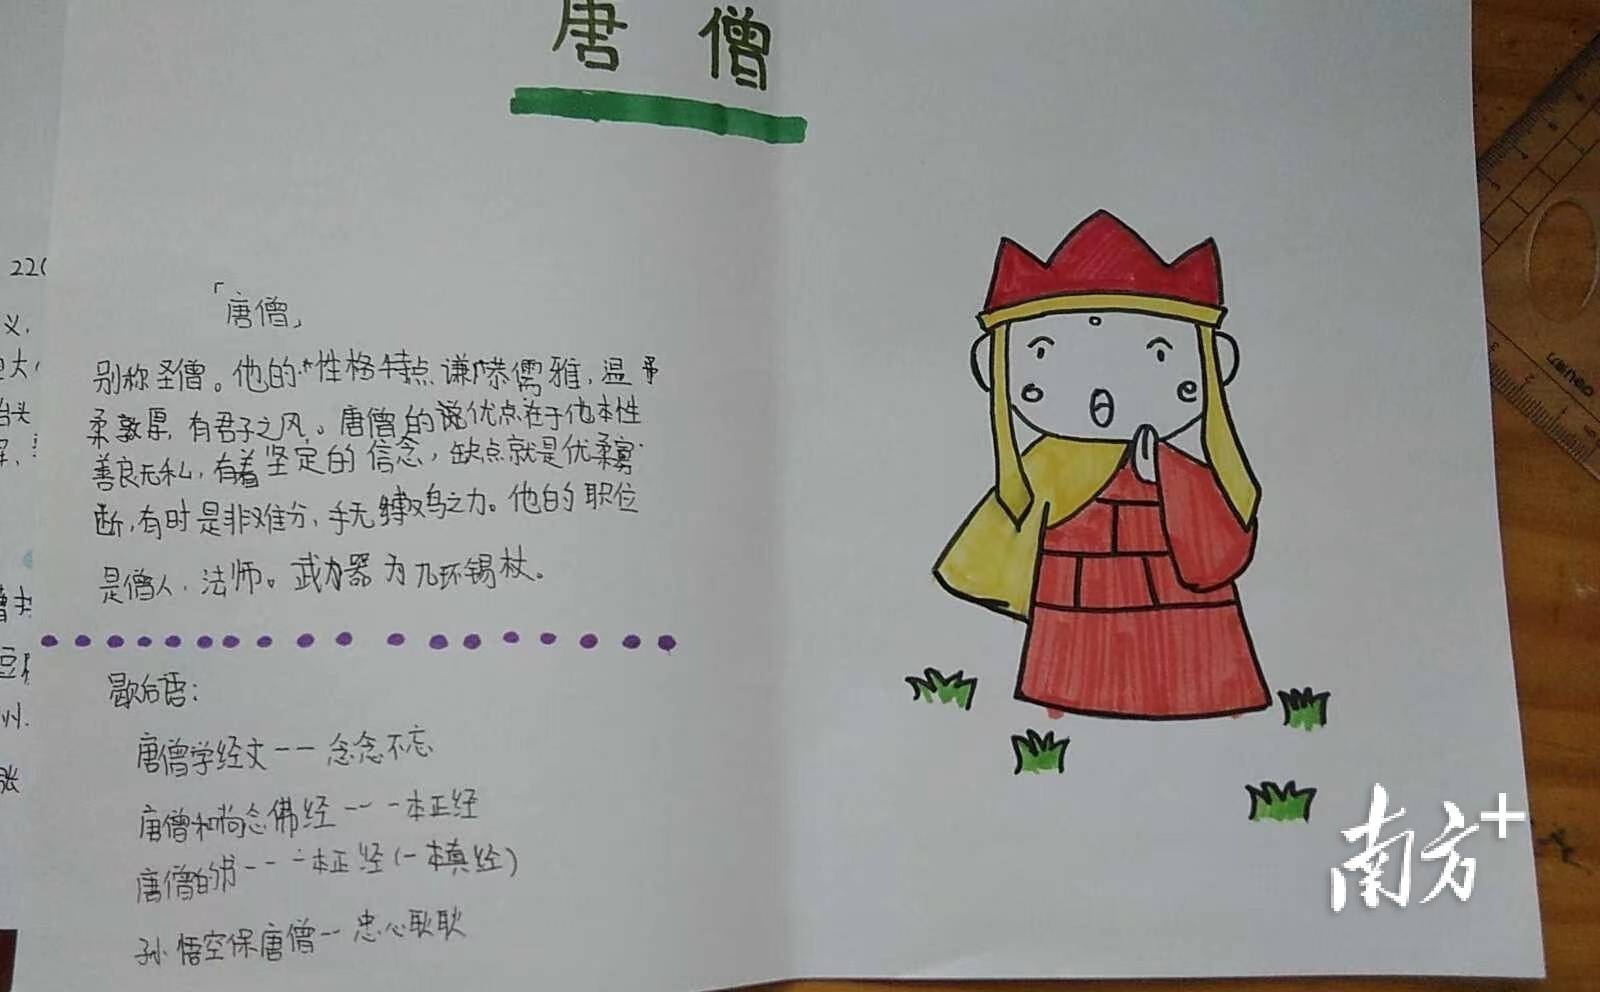 唐 僧
「唐僧」
别称圣僧。他的性格特点谦恭儒雅，温
柔敦厚，有君子之风。唐僧的优点在于他本性
善良无私，有着坚定的信念，缺点就是优柔寡
断，有时是非难分、手无缚鸡之力。他的职位
是僧人、法师。武器为九环锡杖。
歇后语：
唐僧学经文——念念不忘
唐僧和尚念佛经——一本正经
唐僧的书——一本正经（一本真经）
孙悟空保唐僧——忠心耿耿
南方+